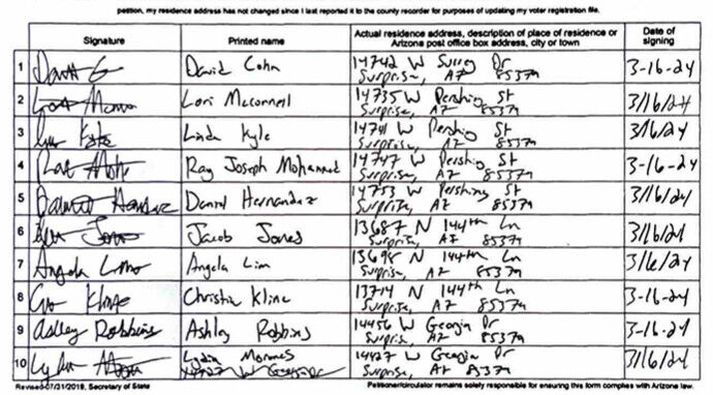 petition, my residence address has not changed since I last reported it to the county recorder for purposes of updating my voter registration file.
Signature Printed name Actual residence address, description of place of residence or Arizona post office box address, city or town Date of signing
1 David Cohn 14742 W Surrey Dr 3-16-24
Surprise, AZ 85379
2 Lori McConnell 14735 W Pershing St 3/16/24
Surprise, AZ 85379
3 Kyle Linda Kyle 14741 W Pershing St 3/16/24
Surprise, AZ 85379
4 Ray Joseph Mohammed 14747 W Pershing St 3-16-24
Surprise, AZ 85379
5 Daniel Hernandez 14753 W Pershing St 3/16/24
Surprise, AZ 85379
6 Jacob Jones 13687 N 144th Ln 3/16/24
Surprise, AZ 85379
7 Angela Angela Lim 13698 N 144th Ln 3/16/24
Surprise, AZ 85379
8 Kline Christie Kline 13714 N 144th Ln 3-16-24
Surprise, AZ 85379
9 Ashley Robbins Ashley Robbins 14456 W Georgia Dr 3-16-24
Surprise, AZ 85379
10 Lydia Lydia 14427 W Georgia Dr 3/16/24
Surprise, AZ 85379
Revised 07/31/2019, Secretary of State Petitioner/circulator remains solely responsible for ensuring this form complies with Arizona law.